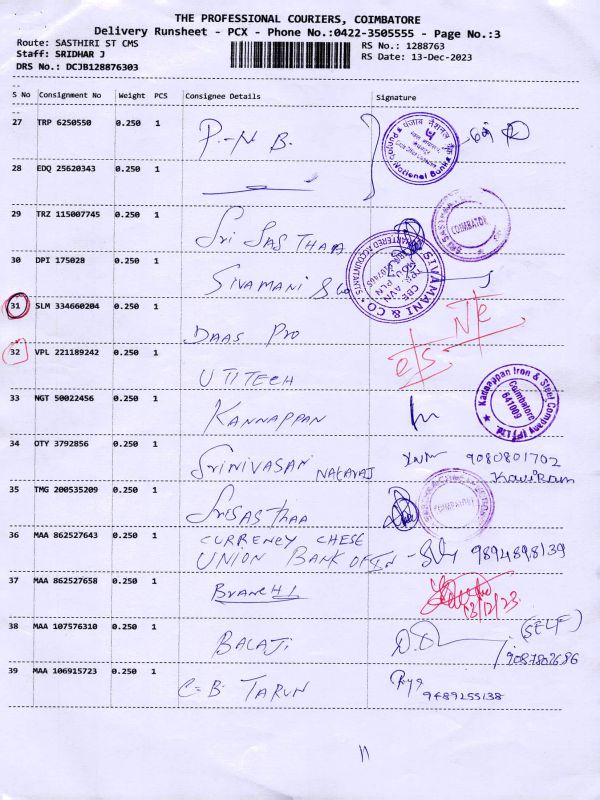 THE PROFESSIONAL COURIERS, COIMBATORE
Delivery Runsheet - PCX - Phone No.:0422-3505555 - Page No.:3
Route: SASTHIRI ST CMS
RS No.: 1288763
Staff: SRIDHAR J
RS Date: 13-Dec-2023
DRS No.: DCJB128876303
S No Consignment No Weight PCS Consignee Details Signature
27 TRP 6250550 0.250 1 P.-N B.
28 EDQ 25620343 0.250 1
29 TRZ 115007745 0.250 1 Sri SAS Thaa
30 DPI 175028 0.250 1 SIVAMANI & Co
31 SLM 334660204 0.250 1 DAAS PRO
N/e
32 VPL 221189242 0.250 1 UTITECH
e/s.
33 NGT 50022456 0.250 1 KANNAPPAN
Kannappan Iron & Steel Company (P) Ltd.
Coimbatore 641009
34 OTY 3792856 0.250 1 SRINIVASAN NATARAJ 9080801702
KaviRam
35 TMG 200535209 0.250 1 SriSAS thaa
36 MAA 862527643 0.250 1 CURRENCY CHESE
UNION BANK OF IN 9894898139
37 MAA 862527658 0.250 1 BRANCH 1
13/12/23
38 MAA 107576310 0.250 1 BALAJI (SELF)
9087802686
39 MAA 106915723 0.250 1 C-B TARUN
9489255138
11
Punjab National Bank
SIVAMANI & CO
CHARTERED ACCOUNTANTS
COIMBATORE